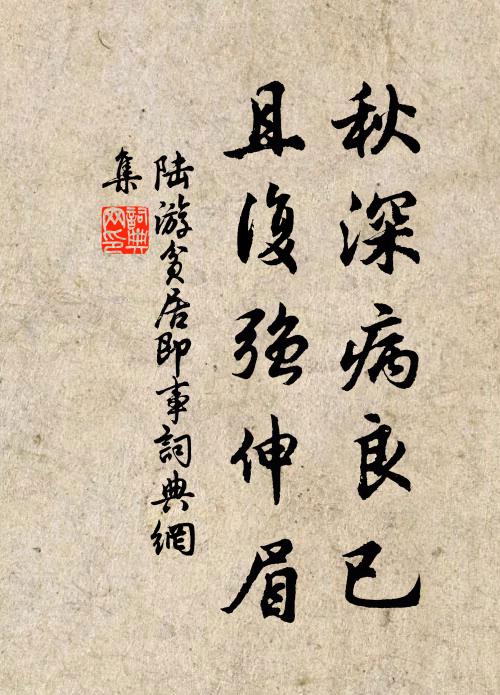 秋深病良已
且復強伸眉
陸游貧居即事詞典網
集
詞典網印